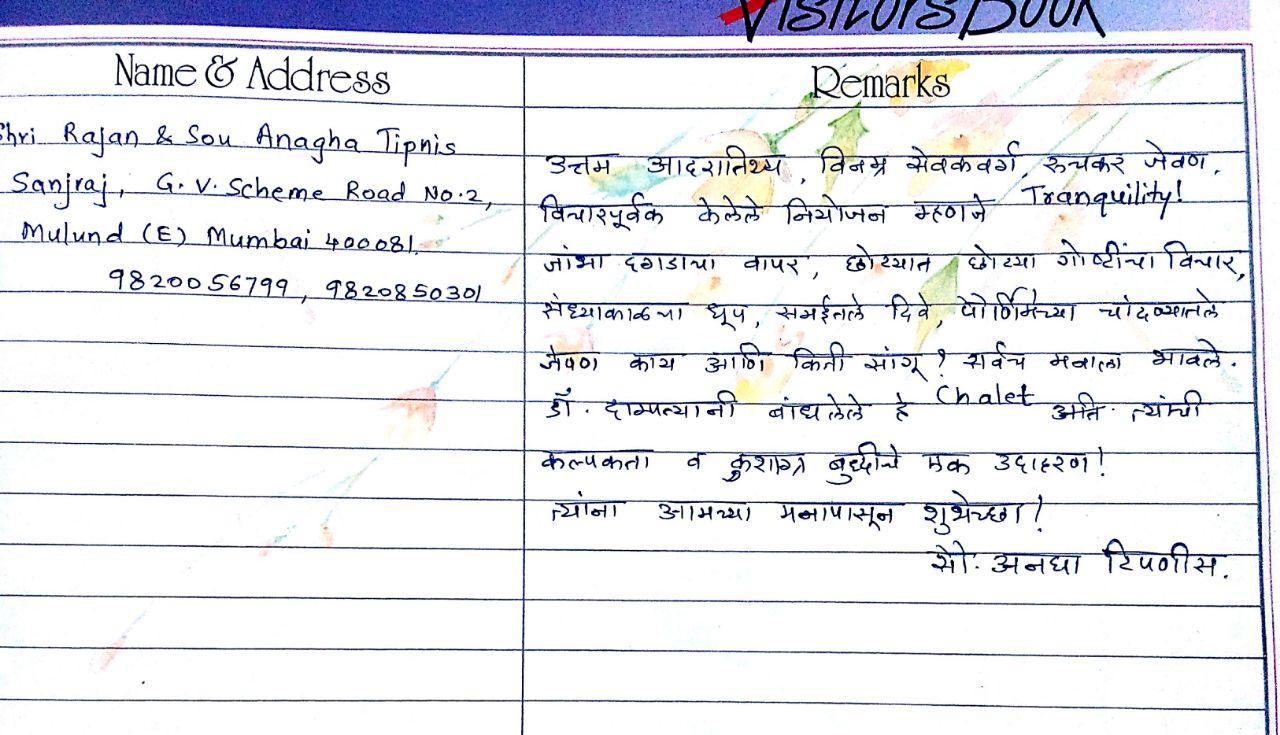 Visitors Book
Name & Address
Remarks
Shri Rajan & Sou Anagha Tipnis
Sanjraj, G. V. Scheme Road No. 2,
Mulund (E) Mumbai 400081.
9820056799, 9820850301
उत्तम आदरातिथ्य, विनम्र सेवकवर्ग, रुचकर जेवण,
विचारपूर्वक केलेले नियोजन म्हणजे Tranquility!
जांभा दगडाचा वापर, छोट्यात छोट्या गोष्टींचा विचार,
संध्याकाळचा धूप, समईतले दिवे, पौर्णिमेच्या चांदण्यातले
जेवण काय आणि किती सांगू? सर्वच मनाला भावले.
डॉ. दाम्पत्यानी बांधलेले हे Chalet अति. त्यांची
कल्पकता व कुशाग्र बुध्दीचे एक उदाहरण!
त्यांना आमच्या मनापासून शुभेच्छा!
सौ. अनघा टिपणीस.